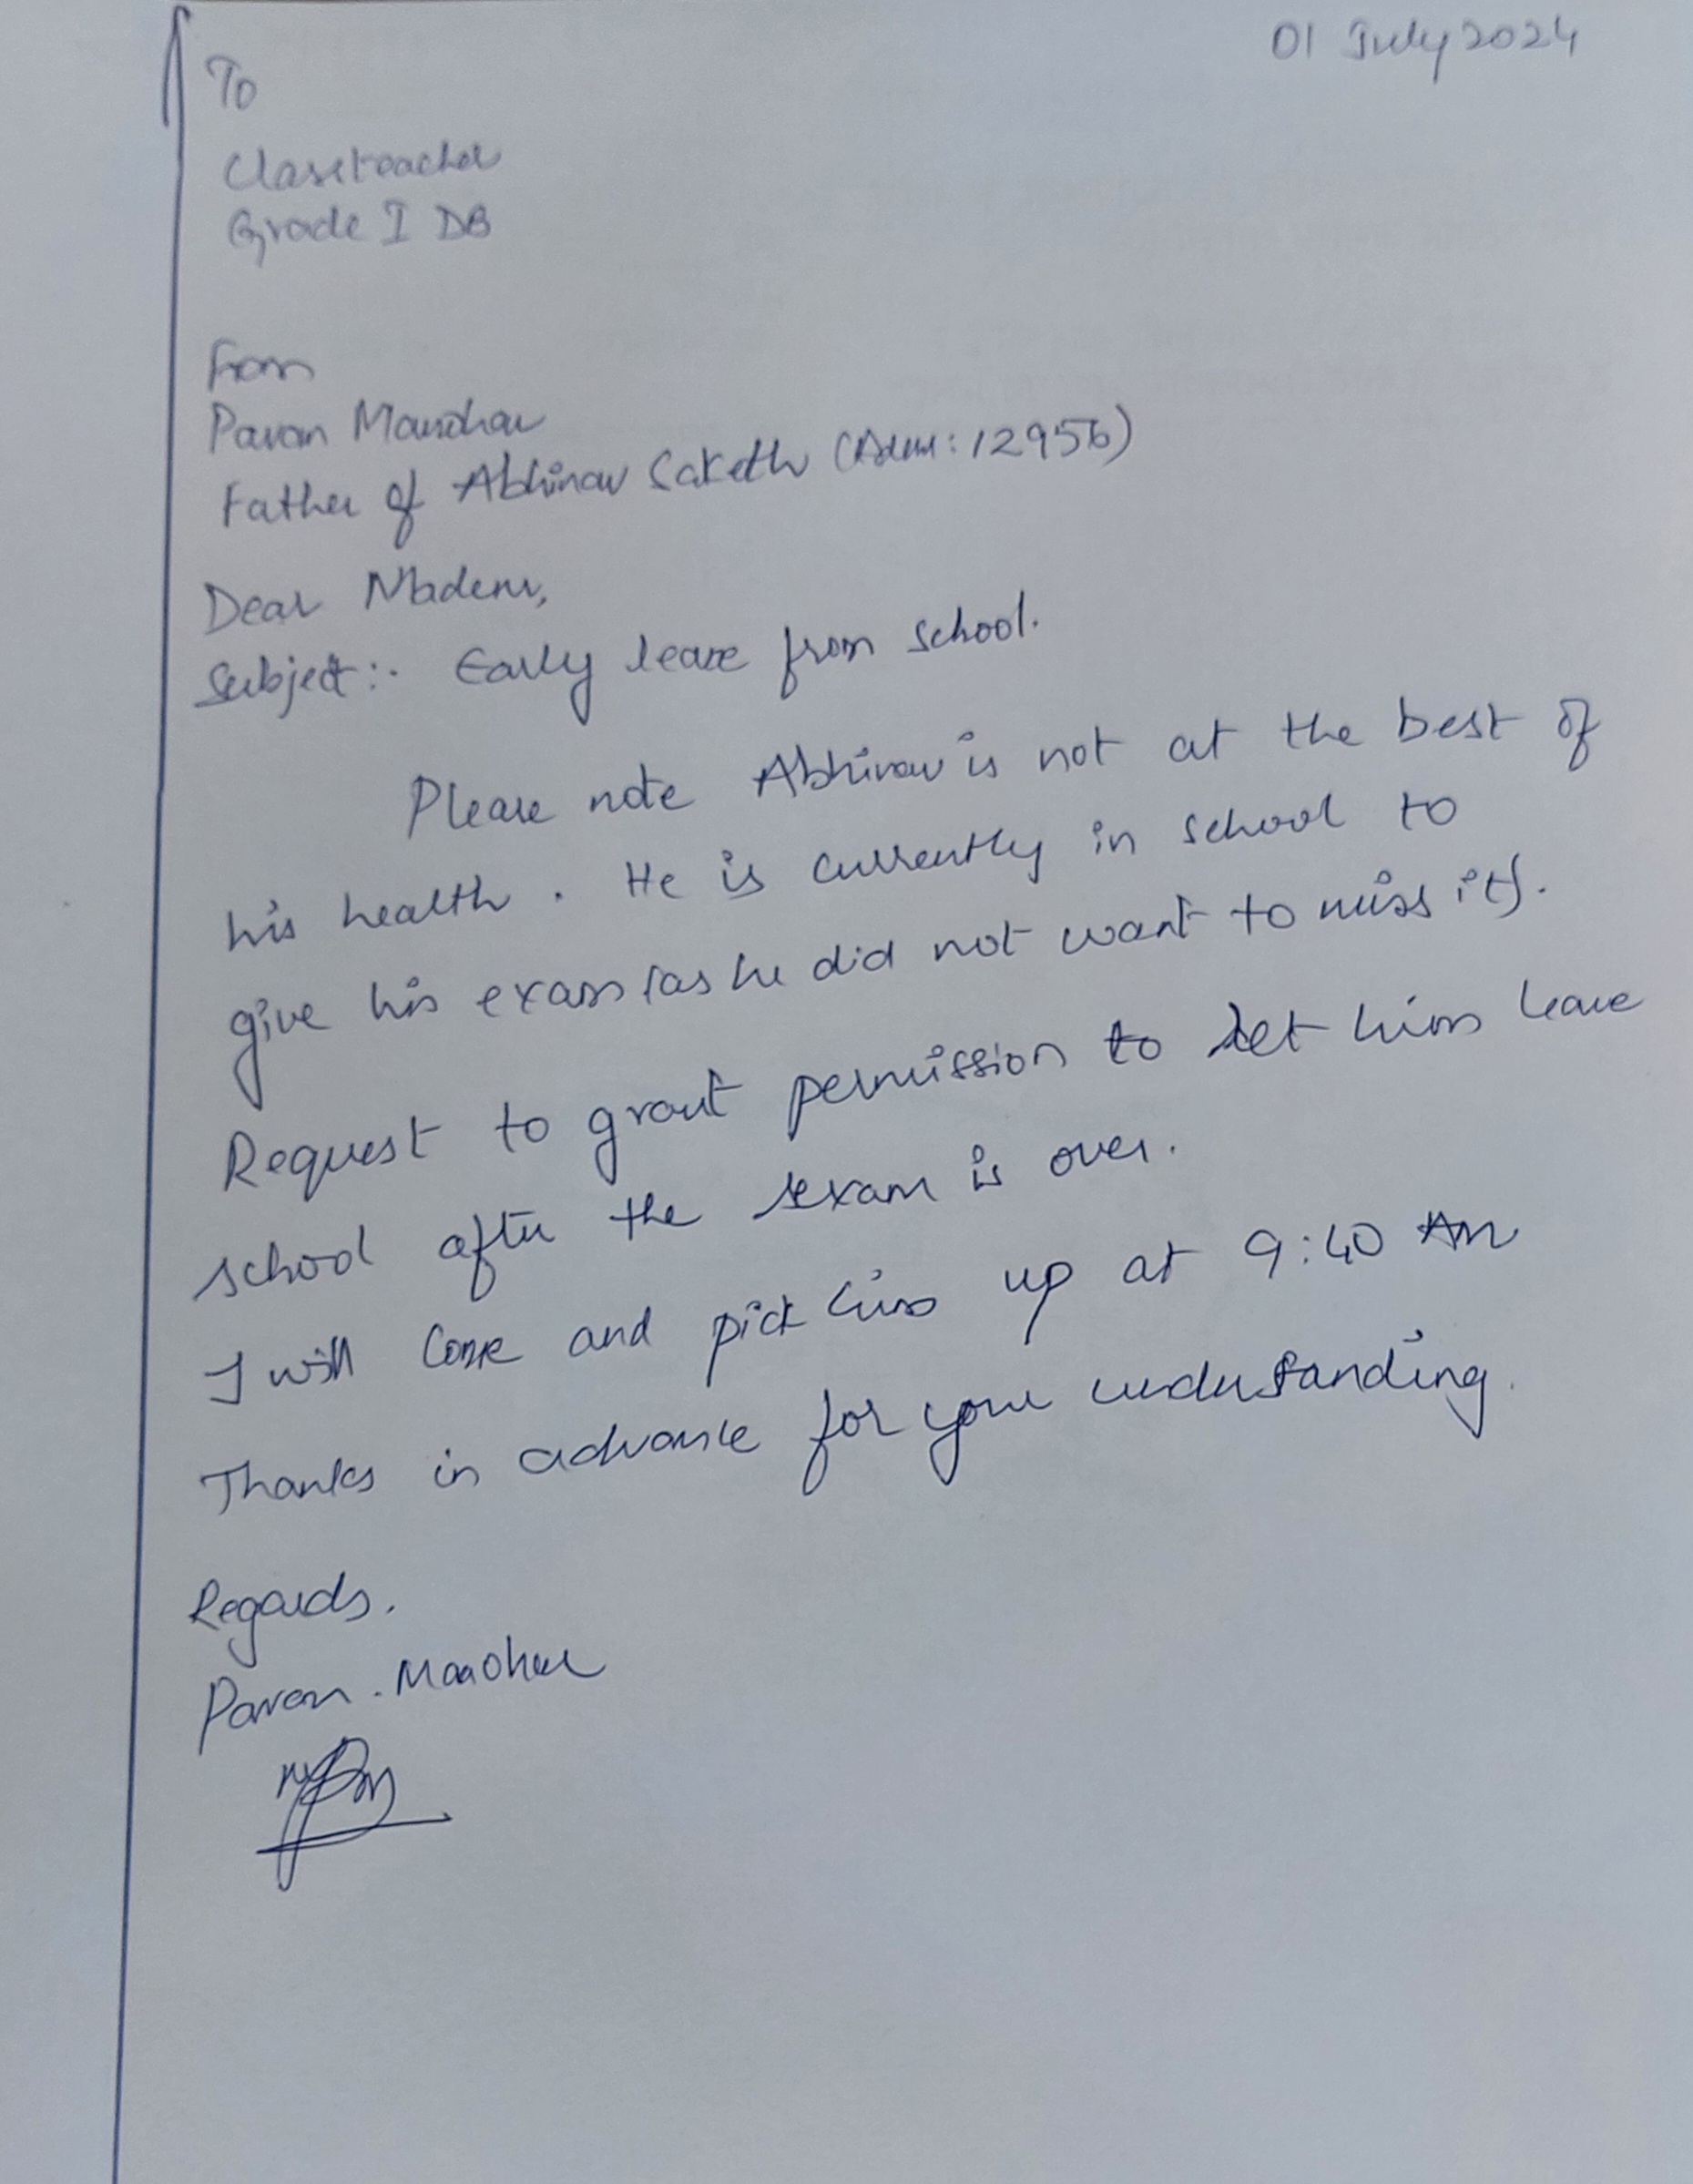 01 July 2024
To
Classteacher
Grade I DB
From
Pavan Manohar
Father of Abhinav Saketh (Adm: 12956)
Dear Madem,
Subject:- Early leave from school.
Please note Abhinav is not at the best of
his health. He is currently in school to
give his exam (as he did not want to miss it).
Request to grant permission to let him leave
school after the exam is over.
I will come and pick him up at 9:40 AM
Thanks in advance for your understanding.
Regards.
Pavan. Manohar